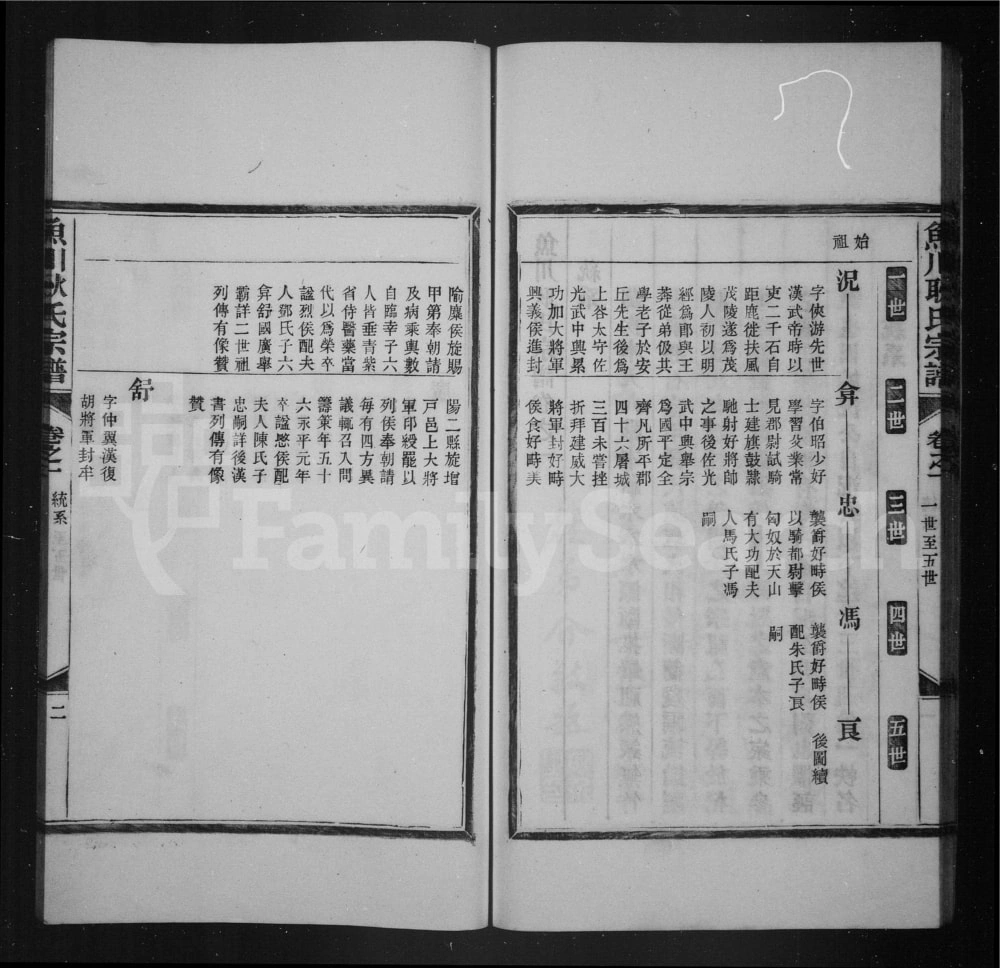 魚川耿氏宗譜
卷之一
一世至五世
一世
二世
三世
四世
五世
始祖
況
弇
忠
馮
良
字俠游先世
漢武帝時以
吏二千石自
距鹿徙扶風
茂陵遂為茂
陵人初以明
經為郎與王
莽從弟伋共
學老子於安
丘先生後為
上谷太守佐
光武中興累
功加大將軍
興義侯進封
字伯昭少好
學習父業常
見郡尉試騎
士建旗鼓肄
馳射好將帥
之事後佐光
武中興舉宗
為國平定全
齊凡所平郡
四十六屠城
三百未嘗挫
折拜建威大
將軍封好畤
侯食好畤美
襲爵好畤侯
以騎都尉擊
匈奴於天山
有大功配夫
人馬氏子馮
嗣
襲爵好畤侯
配朱氏子良
嗣
後圖續
隃麋侯旋賜
甲第奉朝請
及病乘輿數
自臨幸子六
人皆垂青紫
省侍醫藥當
代以為榮卒
諡烈侯配夫
人鄧氏子六
弇舒國廣舉
霸詳二世祖
列傳有像贊
陽二縣旋增
戶邑上大將
軍印綬罷以
列侯奉朝請
每有四方異
議輒召入問
籌策年五十
六永平元年
卒諡愍侯配
夫人陳氏子
忠嗣詳後漢
書列傳有像
贊
舒
字仲翼漢復
胡將軍封牟
魚川耿氏宗譜
卷之一
統系
二
FamilySearch